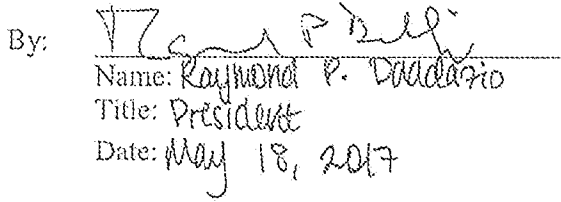 By:
Name: Raymond P. Daddazio
Title: President
Date: May 18, 2017